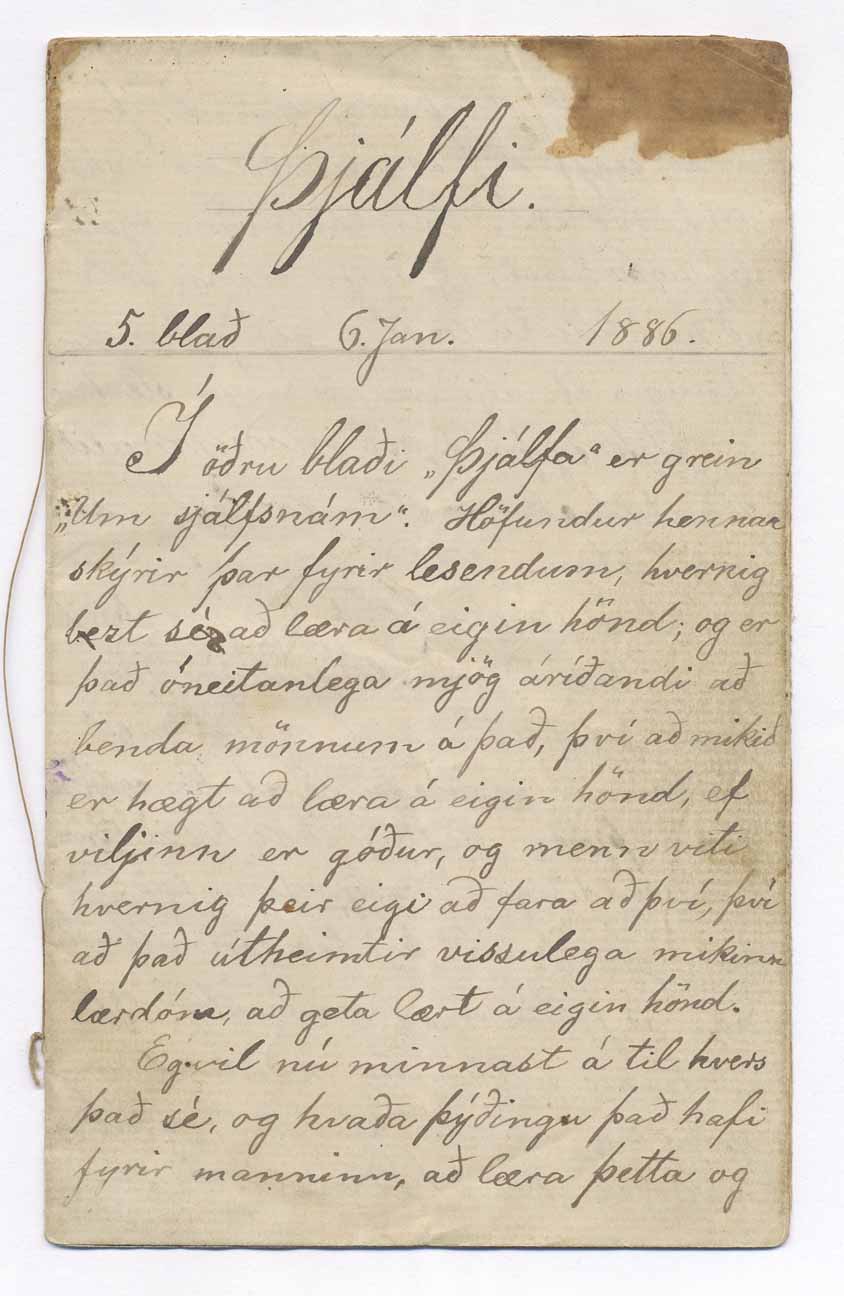 Þjálfi.
5. blað 6. Jan. 1886.
Í öðru blaði „Þjálfa“ er grein
„Um sjálfsnám“. Höfundur hennar
skýrir þar fyrir lesendum, hvernig
bezt sé að læra á eigin hönd; og er
það óneitanlega mjög áríðandi að
benda mönnum á það, því að mikið
er hægt að læra á eigin hönd, ef
viljinn er góður, og menn viti
hvernig þeir eigi að fara að því, því
að það útheimtir vissulega mikinn
lærdóm, að geta lært á eigin hönd.
Eg vil nú minnast á til hvers
það sé, og hvaða þýðingu það hafi
fyrir manninn, að læra þetta og